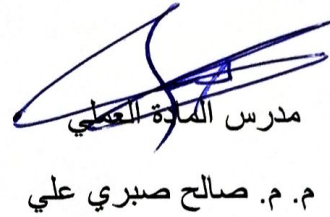 مدرس المادة العملي
م. م. صالح صبري علي